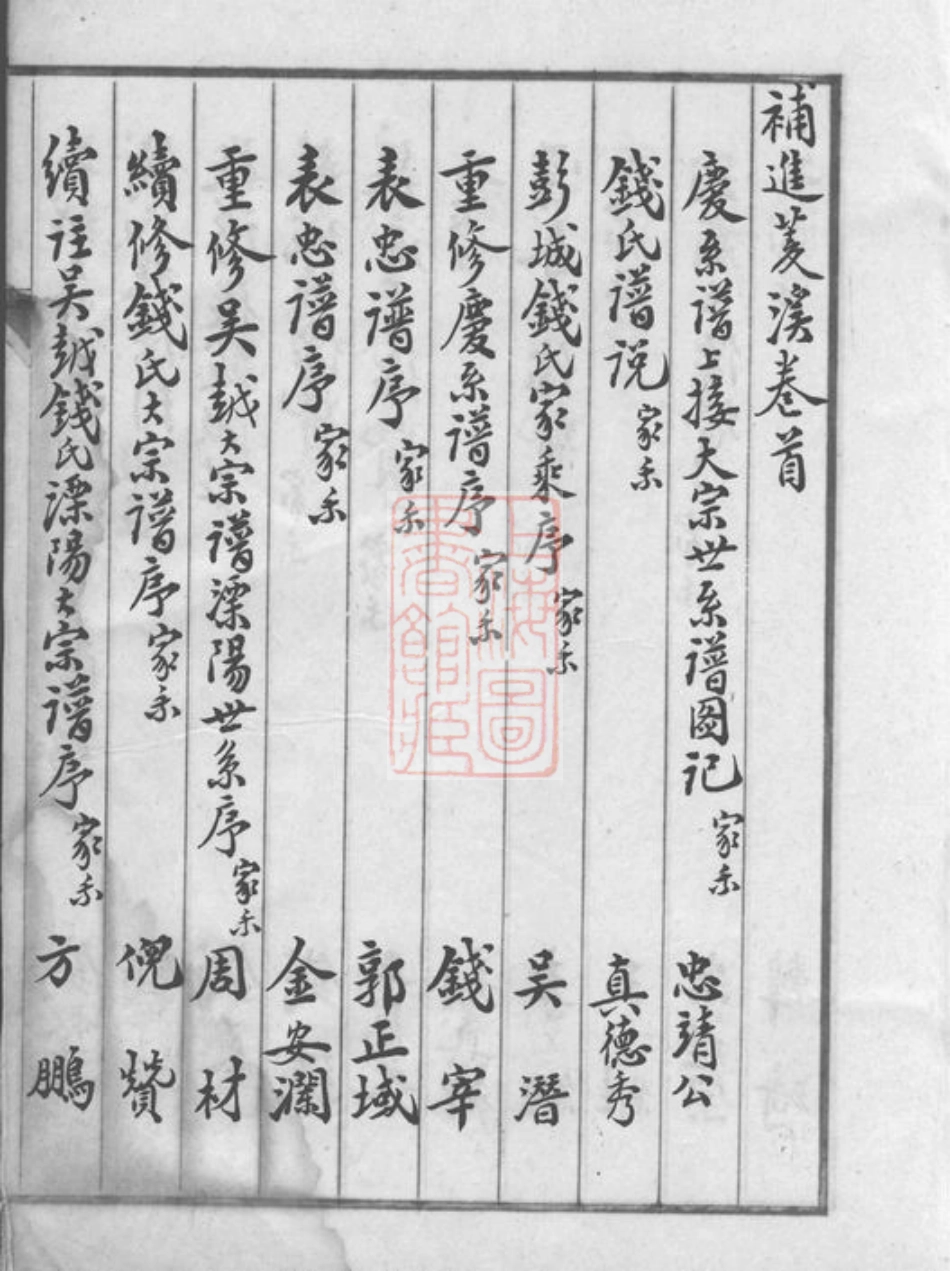 補進菱溪卷首
慶系譜上接大宗世系譜圖記 家乘 忠靖公
錢氏譜說 家乘 真德秀
彭城錢氏家乘序 家乘 吳潛
重修慶系譜序 家乘 錢宰
表忠譜序 家乘 郭正域
表忠譜序 家乘 金安瀾
重修吳越大宗譜溧陽世系序 家乘 周材
續修錢氏大宗譜序 家乘 倪贊
續註吳越錢氏溧陽大宗譜序 家乘 方鵬
上海圖書館藏